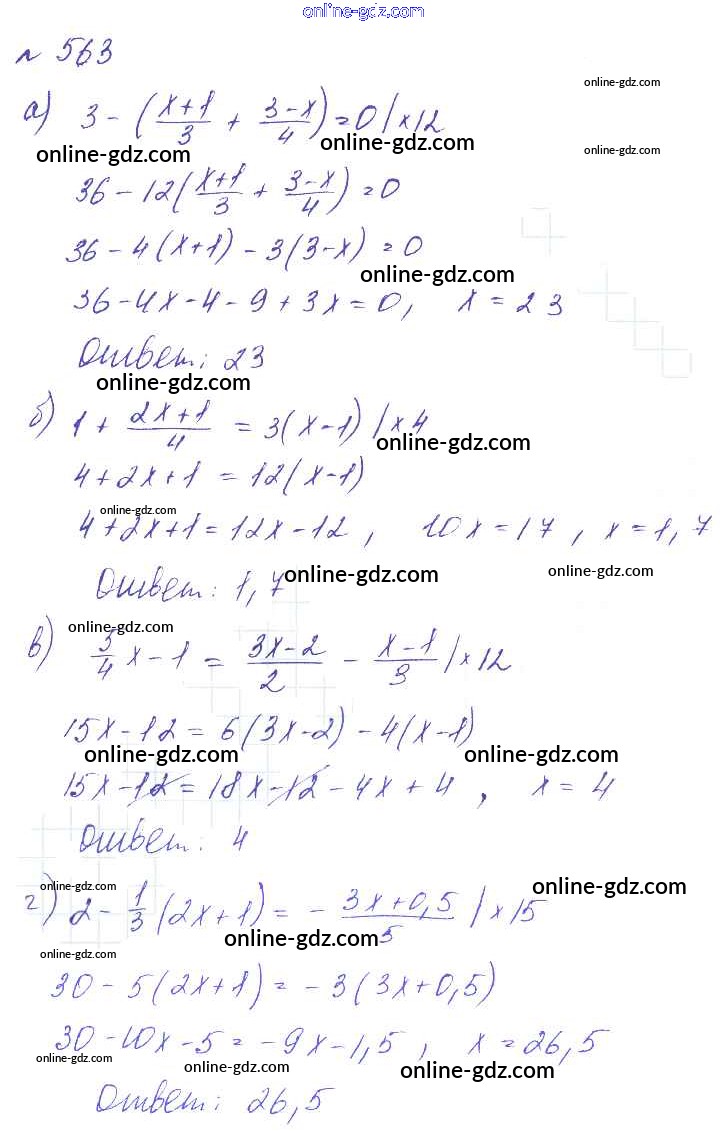 online-gdz.com
№ 563
online-gdz.com
а) 3 - (x+1/3 + 3-x/4) = 0 | x12
online-gdz.com online-gdz.com online-gdz.com
36 - 12(x+1/3 + 3-x/4) = 0
36 - 4(x+1) - 3(3-x) = 0
online-gdz.com
36 - 4x - 4 - 9 + 3x = 0, x = 23
Ответ: 23
online-gdz.com
б) 1 + 2x+1/4 = 3(x-1) | x4
online-gdz.com
4 + 2x + 1 = 12(x-1)
online-gdz.com
4 + 2x + 1 = 12x - 12, 10x = 17, x = 1,7
Ответ: 1,7
online-gdz.com online-gdz.com
online-gdz.com
в) 5/4 x - 1 = 3x-2/2 - x-1/3 | x12
15x - 12 = 6(3x-2) - 4(x-1)
online-gdz.com online-gdz.com
15x - 12 = 18x - 12 - 4x + 4, x = 4
Ответ: 4
online-gdz.com online-gdz.com
г) 2 - 1/3(2x+1) = - 3x+0,5/5 | x15
online-gdz.com
online-gdz.com
30 - 5(2x+1) = -3(3x+0,5)
30 - 10x - 5 = -9x - 1,5, x = 26,5
online-gdz.com online-gdz.com online-gdz.com
Ответ: 26,5